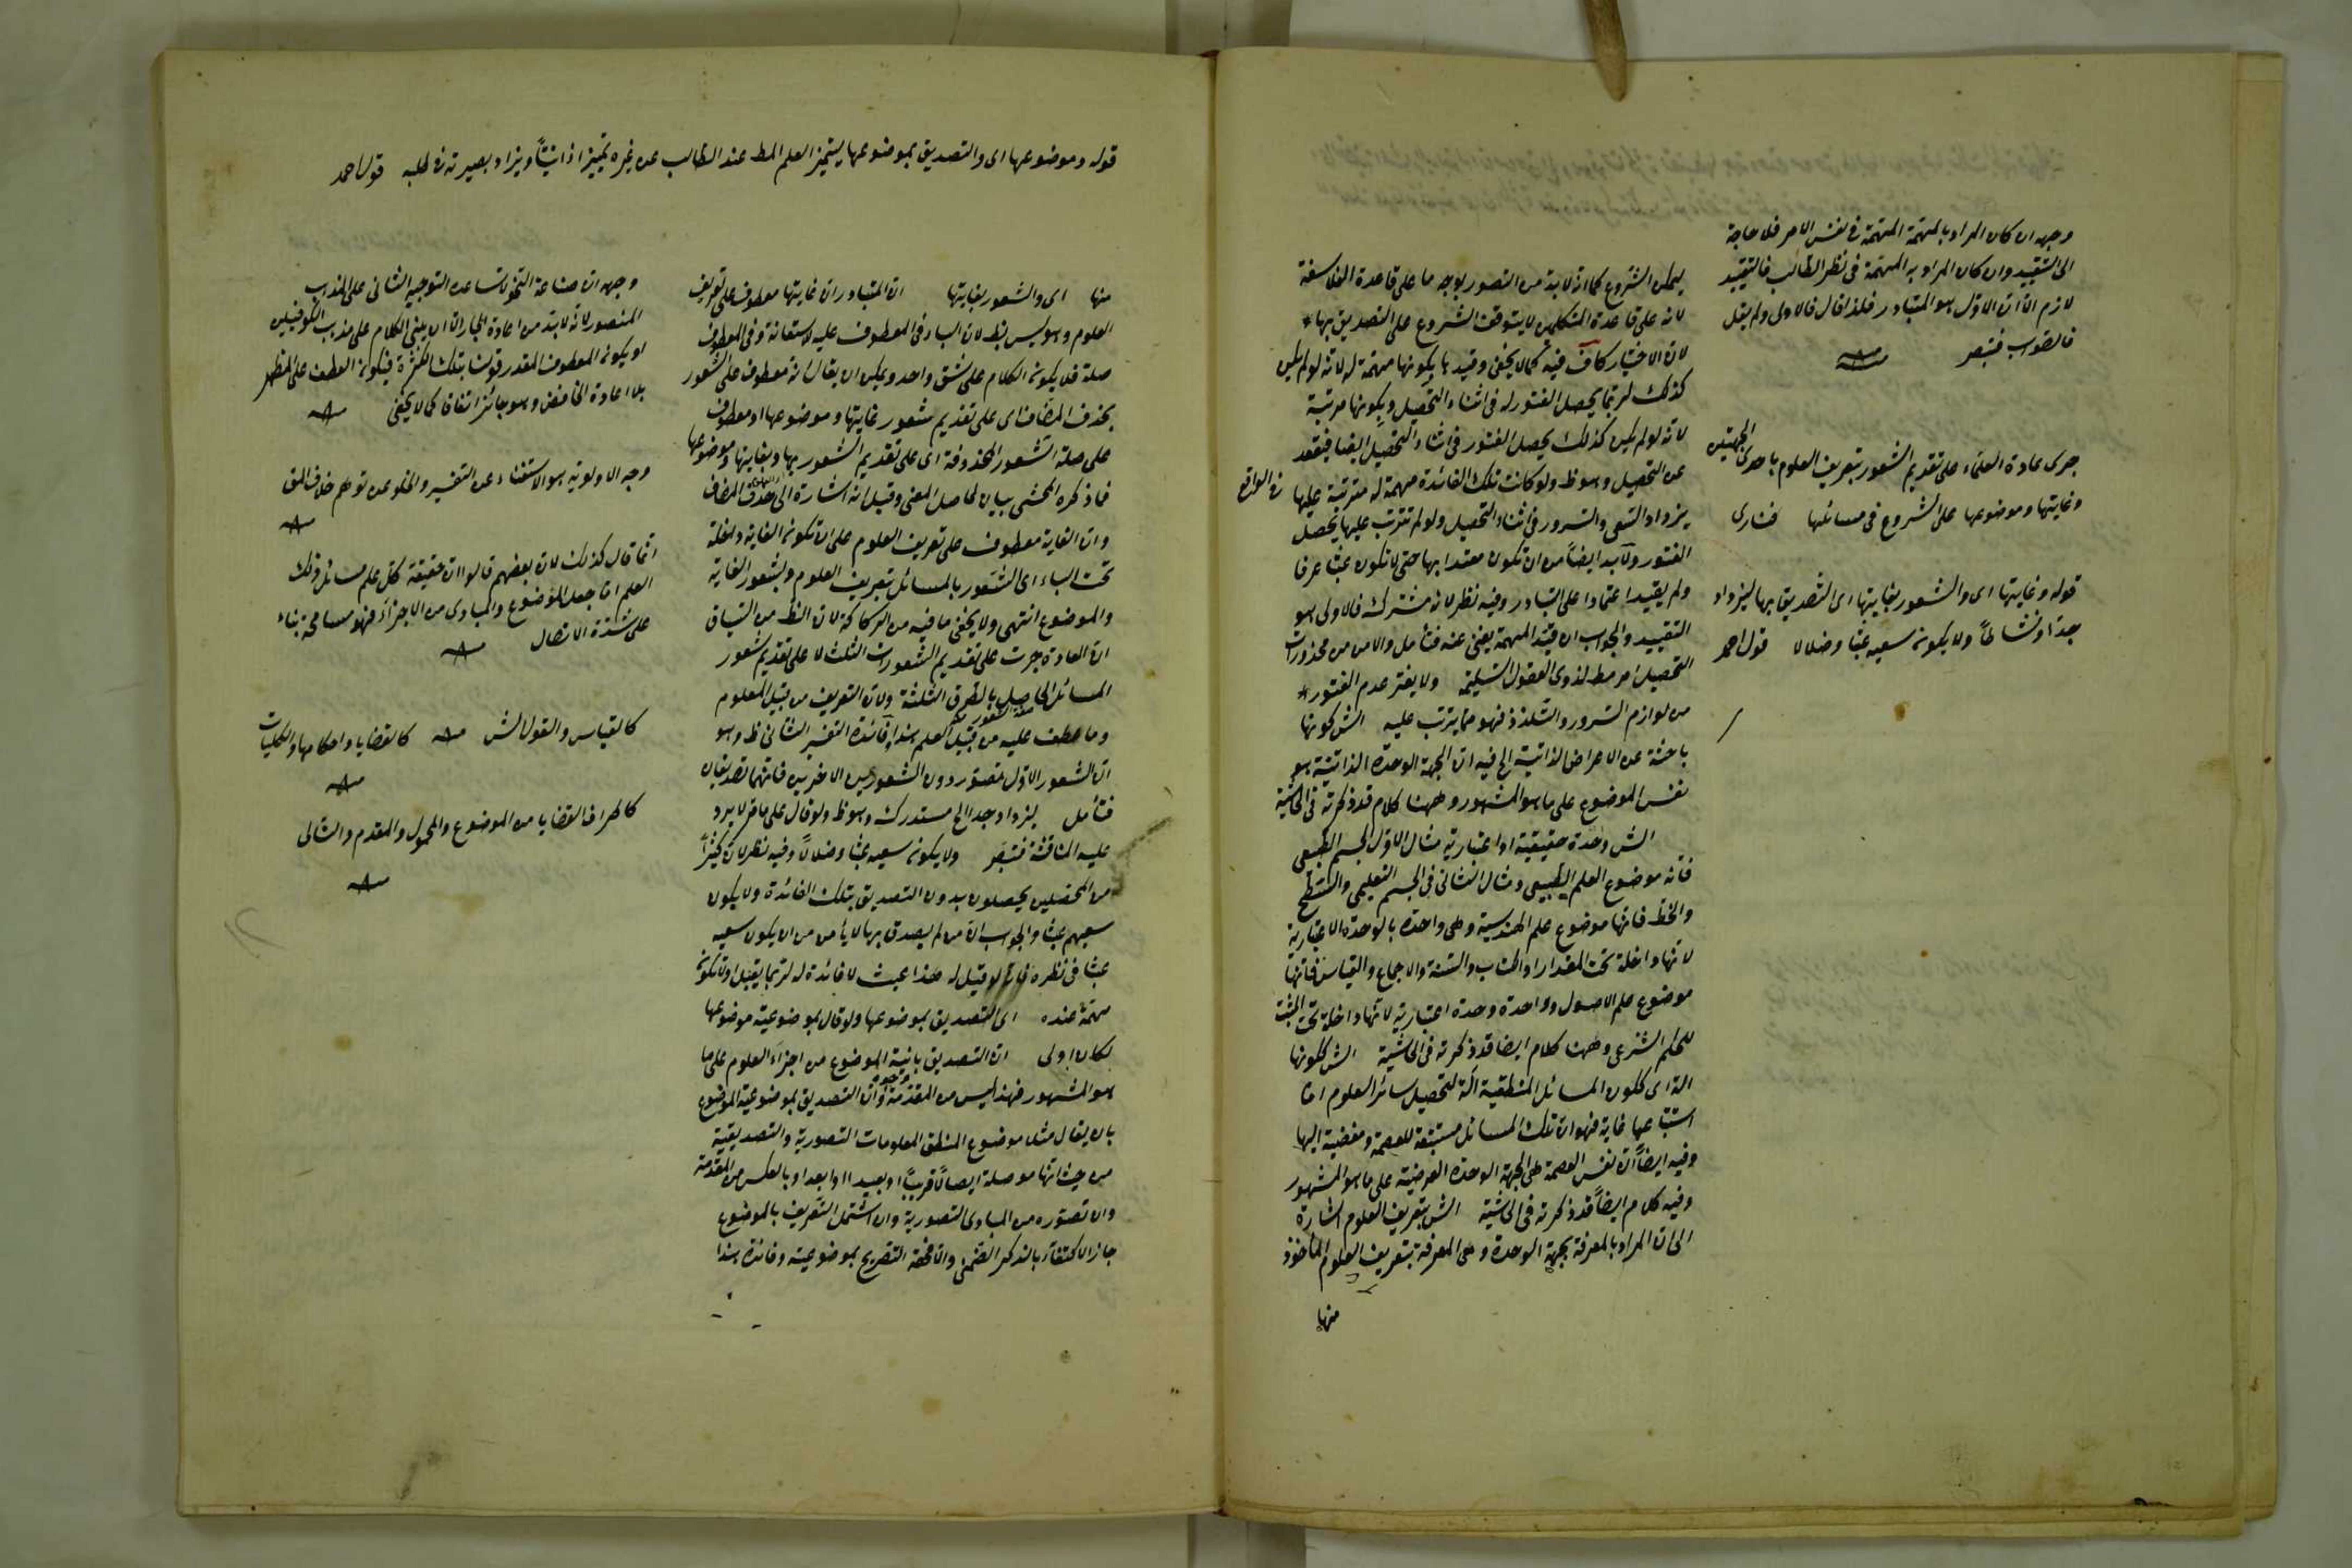 وجهه ان كان المراد بالمهمة المهمة في نفس الامر فلا حاجة
الى التقييد وان كان المراد به المهمة في نظر الطالب فالتقييد
لازم الا ان الاول هو المتبادر فلذا قال فالاولى ولم يقل
فالصواب فتبصر
جرى عادة العلماء على تقديم الشعور بتعريف العلوم باحدى الجهتين
وغايتها وموضوعها على الشروع في مسائلها فنارى
قوله وغايتها اى والشعور بغايتها اى التصديق بها ليزداد
جدا ونشاطا ولا يكون سعيه عبثا وضلالا قول احمد
ليمكن الشروع كما انه لا بد من التصور بوجه ما على قاعدة الفلاسفة
لانه على قاعدة المتكلمين لا يتوقف الشروع على التصديق بها
لان الاختيار كاف فيه كما لا يخفى وقيد بكونها مهمة له لانه لو لم يكن
كذلك لربما يحصل الفتور له في اثناء التحصيل وبكونها مرتبة
لانه لو لم يكن كذلك يحصل الفتور في اثناء التحصيل ايضا فيقعد
عن التحصيل وهو ظ ولو كانت تلك الفائدة مهمة له مترتبة عليها في الواقع
يزداد السعى والسرور في اثناء التحصيل ولو لم تترتب عليها يحصل
الفتور ولا بد ايضا من ان تكون معتدا بها حتى لا تكون عبثا عرفا
ولم يقيد اعتمادا على التبادر وفيه نظر لانه مشترك فالاولى هو
التقييد والجواب ان قيد المهمة يغنى عنه فتأمل والامن من محذورات
التحصيل امر مط لذوى العقول السليمة ولا يفتر عدم الفتور
من لوازم السرور والتلذذ فهو مما يترتب عليه الش كونها
باحثة عن الاعراض الذاتية الخ فيه ان الجهة الوحدة الذاتية هو
نفس الموضوع على ما هو المشهور وههنا كلام قد ذكرته في الحاشية
الش وحدة حقيقية او اعتبارية مثال الاول الجسم الطبيعى
فانه موضوع العلم الطبيعى ومثال الثانى في الجسم التعليمى والسطح
والخط فانها موضوع علم الهندسية وهى واحدة بالوحدة الاعتبارية
لانها داخلة تحت المقدار او الكتاب والسنة والاجماع والقياس فانها
موضوع علم الاصول وواحدة وحدة اعتبارية لانها داخلة تحت المثبت
للحكم الشرعى وههنا كلام ايضا قد ذكرته في الحاشية الش ككونها
الة اى ككون المسائل المنطقية آلة لتحصيل سائر العلوم اما
استتباعها غاية فهو ان تلك المسائل مستتبعة للعصمة ومفضية اليها
وفيه ايضا ان نفس العصمة هى الجهة الوحدة العرضية على ما هو المشهور
وفيه كلام ايضا قد ذكرته في الحاشية الش بتعريف العلوم اشارة
الى ان المراد بالمعرفة بجهة الوحدة وهى المعرفة بتعريف العلوم المأخوذ
منها
قوله وموضوعها اى والتصديق بموضوعها ليتميز العلم المط عند الطالب عن غيره تميزا ذاتيا ويزداد بصيرته في طلبه قول احمد
منها اى والشعور بغايتها ان المتبادر ان غايتها معطوف على تعريف
العلوم وهو ليس بظ لان الباء في المعطوف عليه للاستعانة وفى المعطوف
صلة فلا يكون الكلام على نسق واحد ويمكن ان يقال انه معطوف على الشعور
بحذف المضاف اى على تقديم شعور غايتها وموضوعها او معطوف
على صلة الشعور المحذوفة اى على تقديم الشعور بها وبغايتها وموضوعها
فما ذكره المحشى بيان لحاصل المعنى وقيل انه اشارة الى حذف المضاف
وان الغاية معطوف على تعريف العلوم على ان تكون الغاية داخلة
تحت الباء اى الشعور بالمسائل بتعريف العلوم وبشعور الغاية
والموضوع انتهى ولا يخفى ما فيه من الركاكة لان الظ من السياق
ان العادة جرت على تقديم الشعورات الثلث لا على تقديم شعور
المسائل الحاصل بالطرق الثلثة ولان التعريف من قبيل المعلوم
وما عطف عليه من قبيل العلم هذا فائدة التفسير الثانى ظ وهو
ان الشعور الاول تصور دون الشعورين الاخيرين فانهما تصديقان
فتأمل ليزداد جدا الخ مستدرك وهو ظ ولو قال على ما مر لا يرد
عليه المناقشة فتبصر ولا يكون سعيه عبثا وضلالا وفيه نظر لان كثيرا
من المحصلين يحصلون بدون التصديق بتلك الفائدة ولا يكون
سعيهم عبثا والجواب ان من لم يصدق بها لا يأمن من ان يكون سعيه
عبثا في نظره فانه لو قيل له هذا عبث لا فائدة له لربما يقبل اولا تكون
مهمة عنده اى التصديق بموضوعها ولو قال بموضوعية موضوعها
لكان اولى ان التصديق بانية الموضوع من اجزاء العلوم على ما
هو المشهور فهذا ليس من المقدمة وان التصديق بموضوعية الموضوع
بان يقال مثلا موضوع المنطق المعلومات التصورية والتصديقية
من حيث انها موصلة ايصالا قريبا او بعيدا او ابعد او بالعكس من المقدمة
وان تصوره من المبادى التصورية وان اشتمل التعريف بالموضوع
جاز الاكتفاء بالذكر الضمنى والا فحقه التصريح بموضوعيته وفائدة هذا
وجهه ان صناعة النحو لا تساعده التوجيه الثانى على المذهب
المنصور لانه لا بد من اعادة الجار الا ان يبنى الكلام على مذهب الكوفيين
او يكون المعطوف المقدر قولنا بتلك الكثرة فيكون العطف على المظهر
بلا اعادة الخافض وهو جائز اتفاقا كما لا يخفى
وجه الاولوية هو الاستغناء عن التفسير والخلو عن توهم خلاف المق
انما قال كذلك لان بعضهم قالوا ان حقيقة كل علم مسائل ذلك
العلم اما جعل الموضوع والمبادى من الاجزاء فهو مسامحة بناء
على شدة الاتصال
كالقياس والقول الش كالقضايا واحكامها والكليات
كاطراف القضايا من الموضوع والمحمول والمقدم والتالى